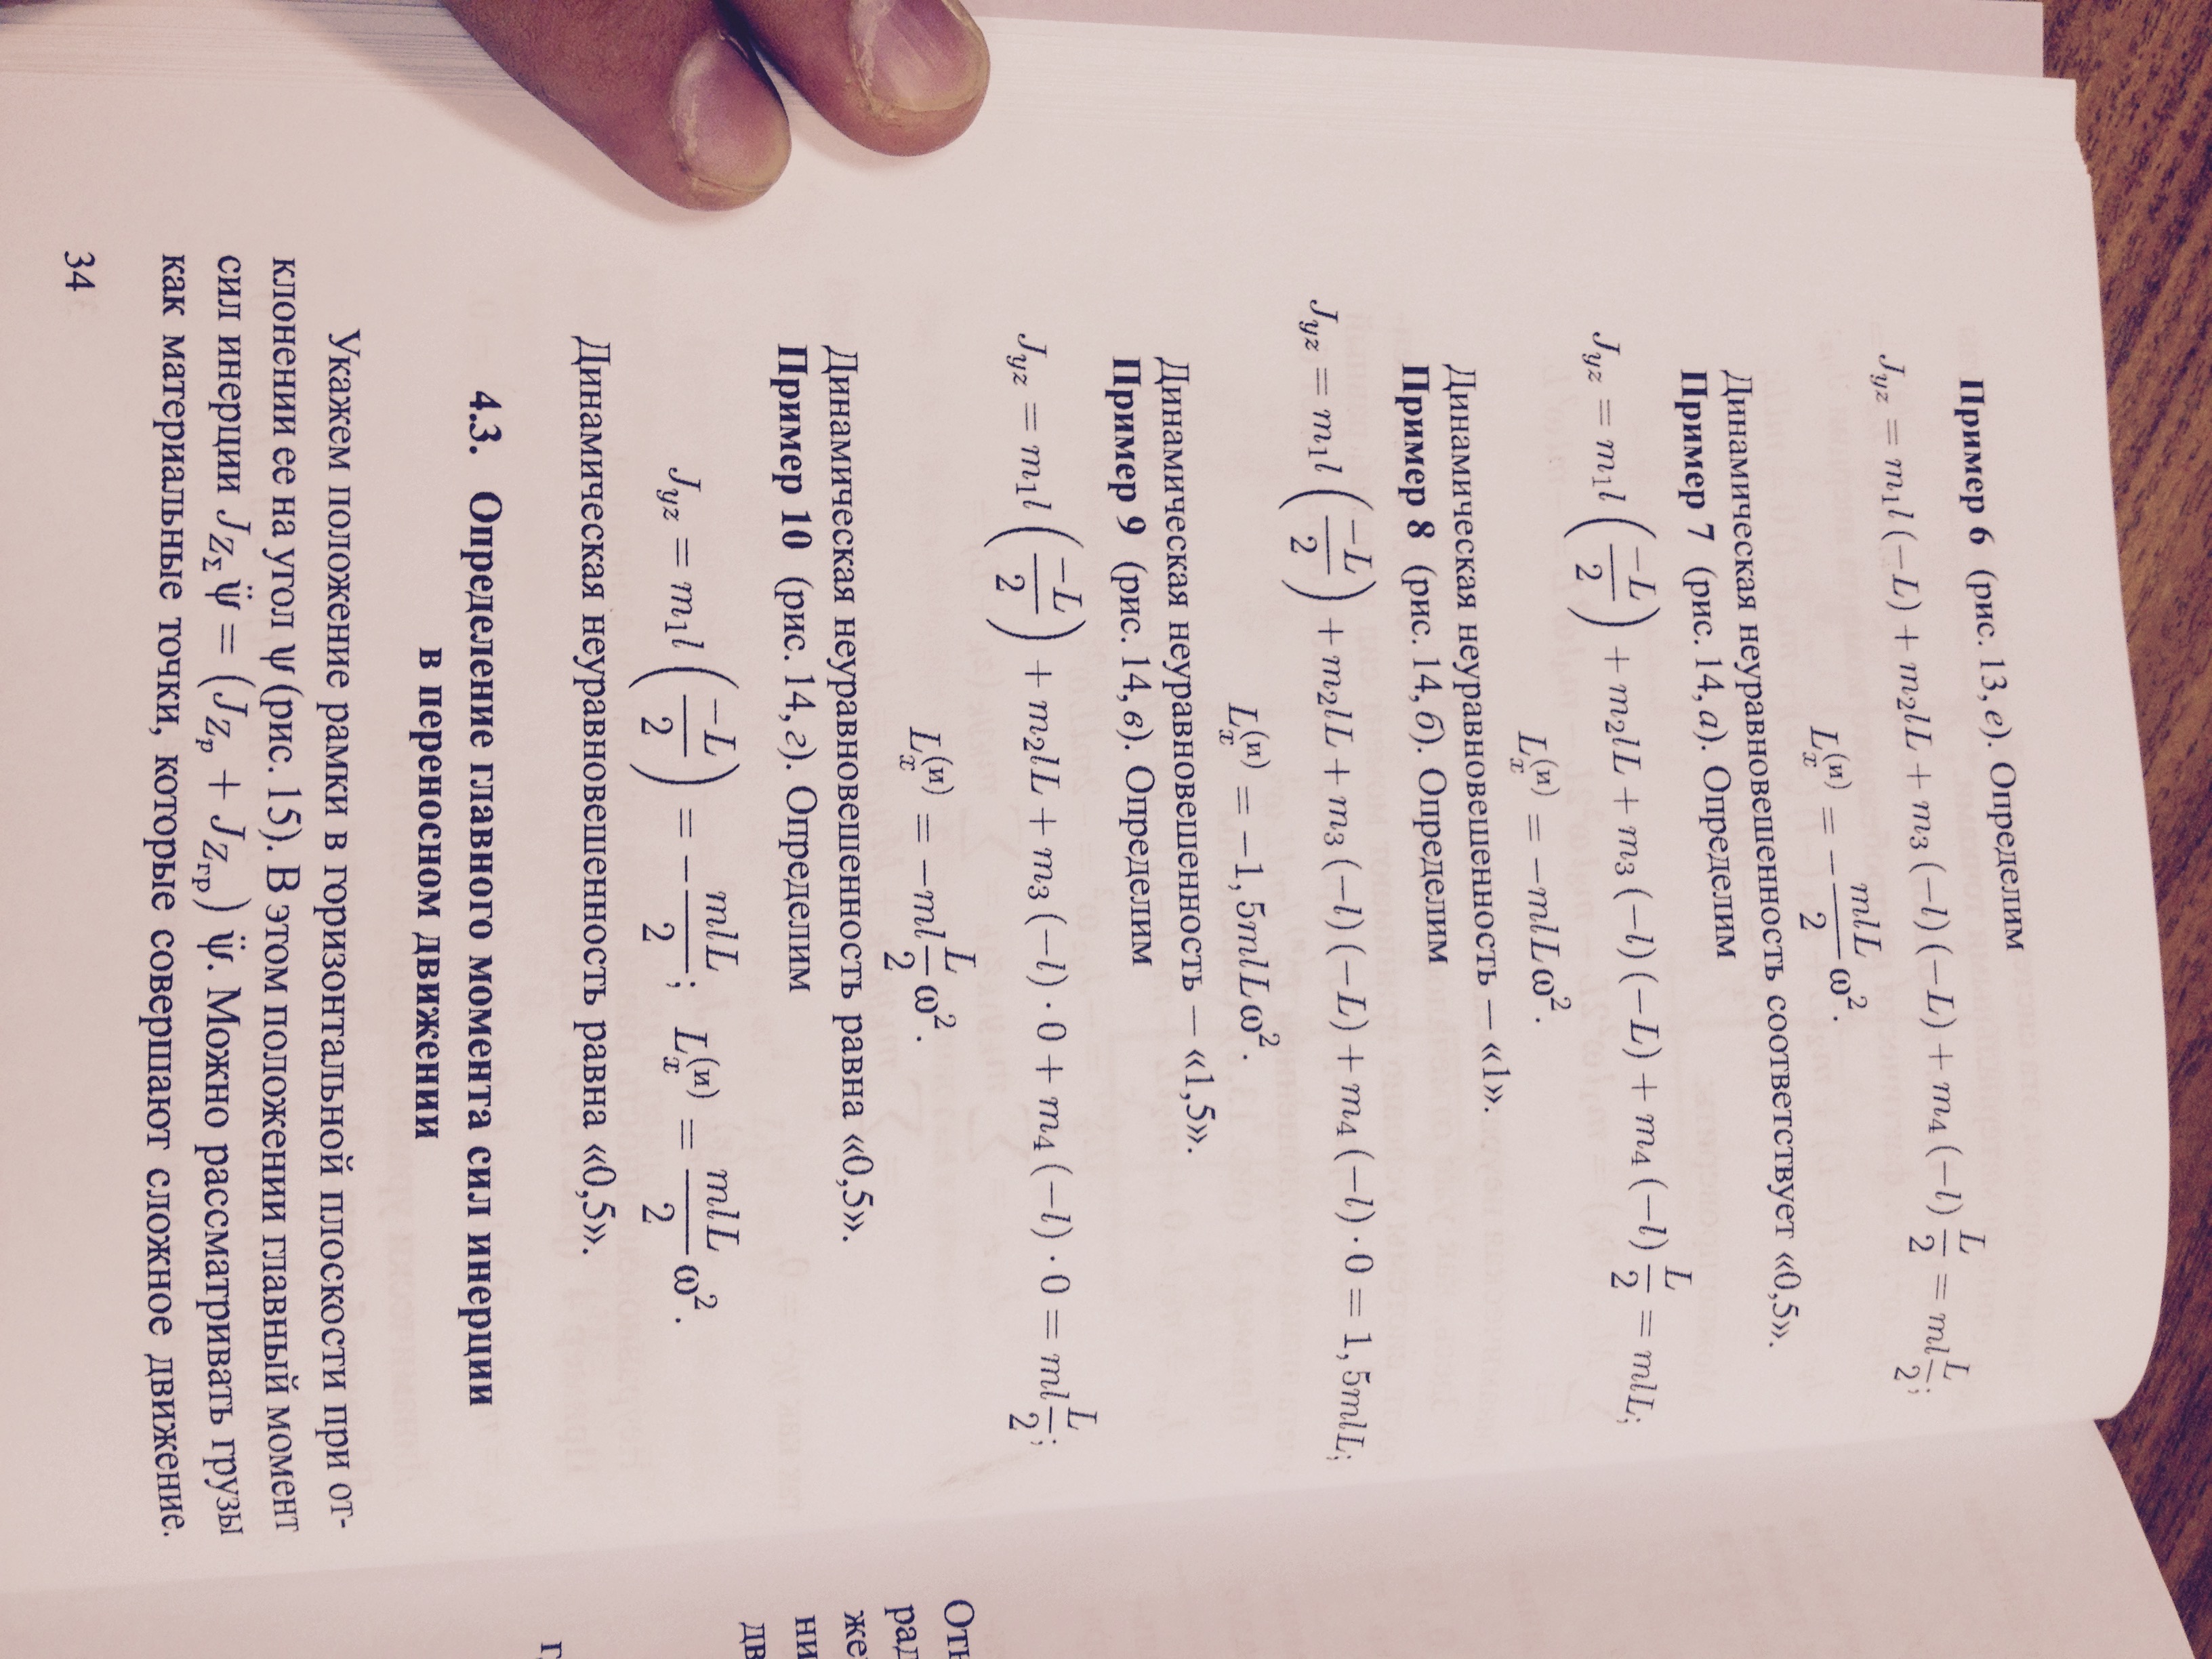 Пример 6 (рис. 13, е). Определим
J_{yz} = m_1 l (−L) + m_2 lL + m_3 (−l)(−L) + m_4 (−l) \frac{L}{2} = ml\frac{L}{2};
L_x^{(и)} = −\frac{mlL}{2} ω^2.
Динамическая неуравновешенность соответствует «0,5».
Пример 7 (рис. 14, а). Определим
J_{yz} = m_1 l \left(\frac{−L}{2}\right) + m_2 lL + m_3 (−l)(−L) + m_4 (−l) \frac{L}{2} = mlL;
L_x^{(и)} = −mlLω^2.
Динамическая неуравновешенность — «1».
Пример 8 (рис. 14, б). Определим
J_{yz} = m_1 l \left(\frac{−L}{2}\right) + m_2 lL + m_3 (−l)(−L) + m_4 (−l) · 0 = 1,5mlL;
L_x^{(и)} = −1,5mlLω^2.
Динамическая неуравновешенность — «1,5».
Пример 9 (рис. 14, в). Определим
J_{yz} = m_1 l \left(\frac{−L}{2}\right) + m_2 lL + m_3 (−l) · 0 + m_4 (−l) · 0 = ml\frac{L}{2};
L_x^{(и)} = −ml\frac{L}{2}ω^2.
Динамическая неуравновешенность равна «0,5».
Пример 10 (рис. 14, г). Определим
J_{yz} = m_1 l \left(\frac{−L}{2}\right) = −\frac{mlL}{2}; L_x^{(и)} = \frac{mlL}{2} ω^2.
Динамическая неуравновешенность равна «0,5».
4.3. Определение главного момента сил инерции
в переносном движении
Укажем положение рамки в горизонтальной плоскости при от-
клонении ее на угол ψ (рис. 15). В этом положении главный момент
сил инерции J_{Z_Σ} ψ̈ = (J_{Z_р} + J_{Z_{гр}}) ψ̈. Можно рассматривать грузы
как материальные точки, которые совершают сложное движение.
34